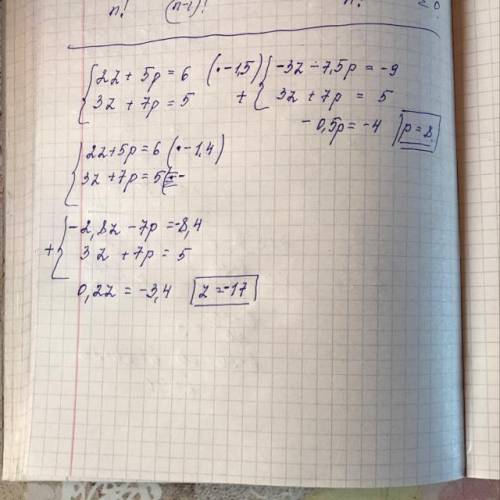 n! (n-i)! n! ≥0
{ 2z + 5p = 6 (·-1,5) { -3z - 7,5p = -9
3z + 7p = 5 + 3z + 7p = 5
- 0,5p = -4 p = 8
{ 2z+5p = 6 (·-1,4)
3z +7p = 5
+ { -2,8z -7p = -8,4
3z +7p = 5
0,2z = -3,4 z = -17